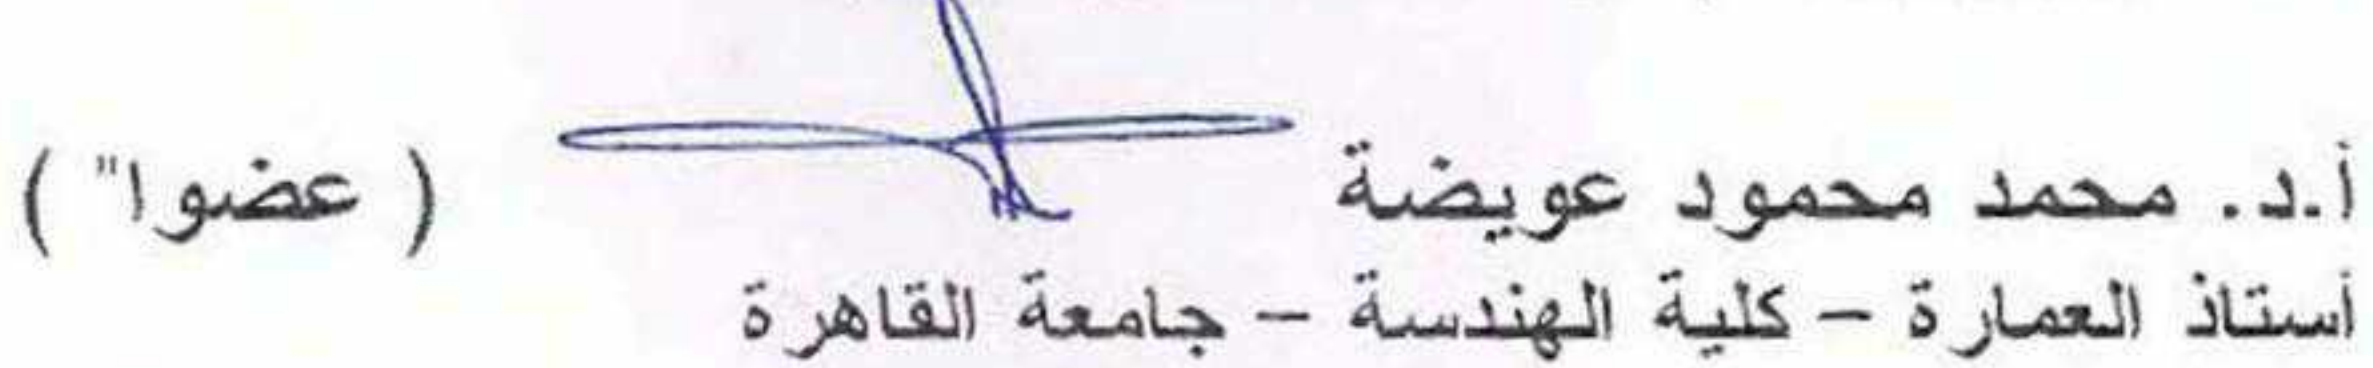 أ.د. محمد محمود عويضة ( عضوا" )
أستاذ العمارة – كلية الهندسة – جامعة القاهرة